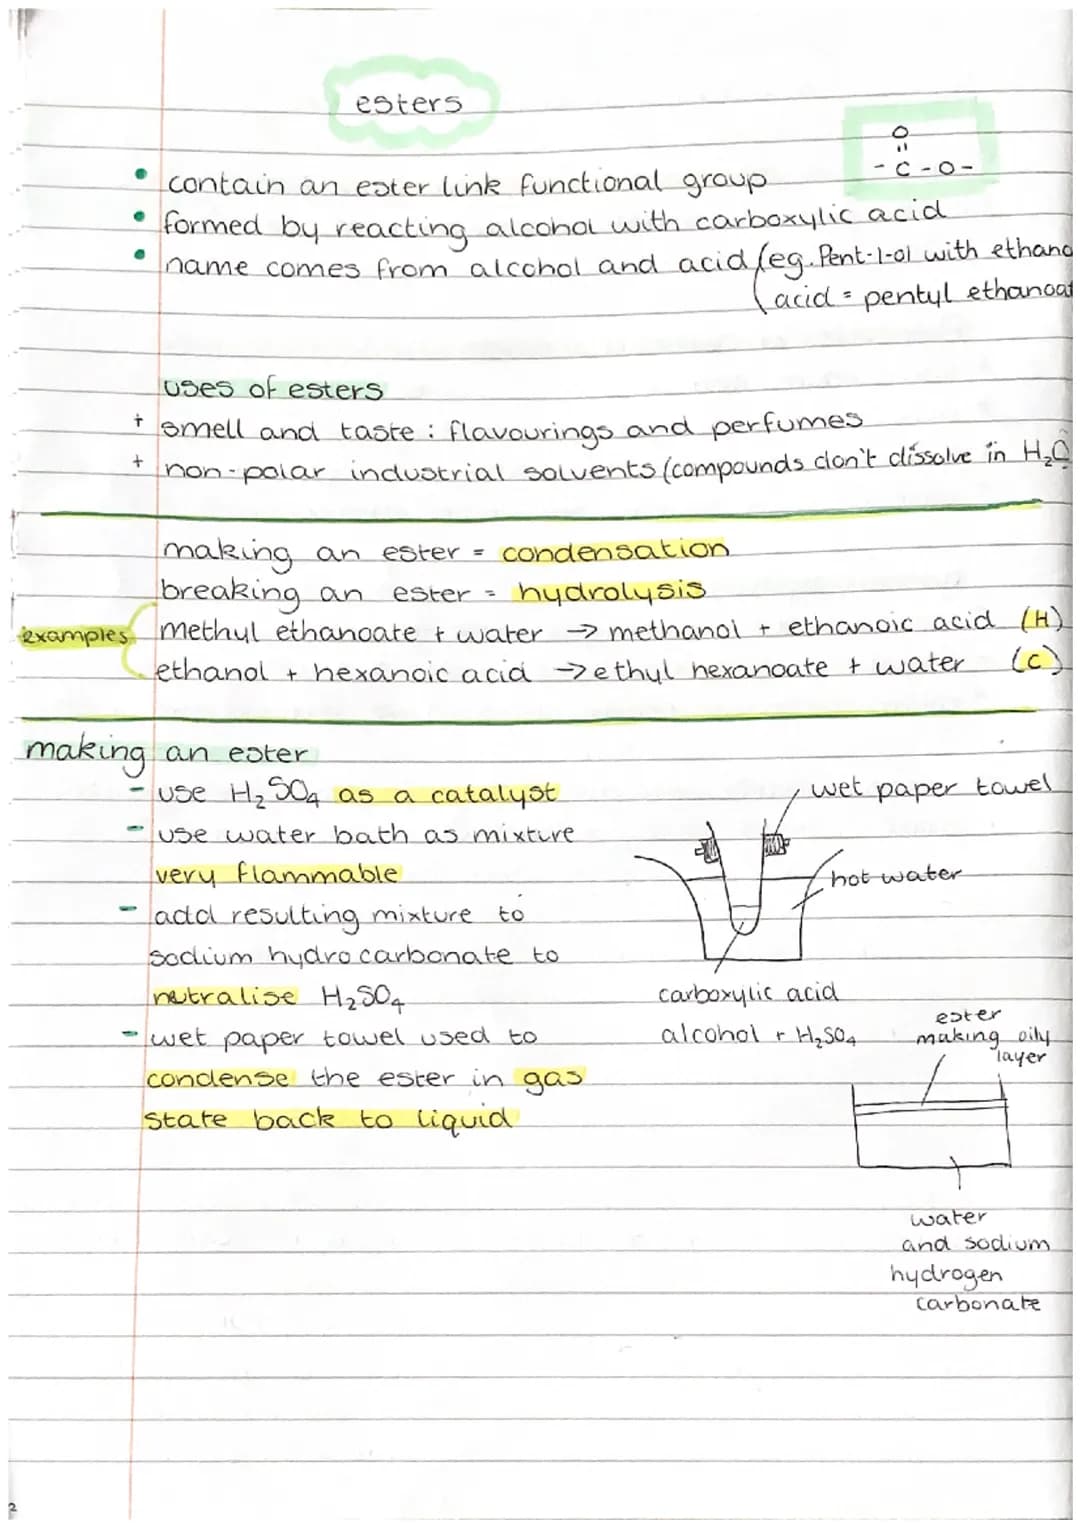 esters
O
"
- C - O -
• contain an ester link functional group
• formed by reacting alcohol with carboxylic acid
• name comes from alcohol and acid (eg. Pent-1-ol with ethano
acid = pentyl ethanoat
uses of esters
+ smell and taste : flavourings and perfumes
+ non-polar industrial solvents (compounds don't dissolve in H₂O
making an ester = condensation
breaking an ester = hydrolysis
examples methyl ethanoate + water → methanol + ethanoic acid (H)
ethanol + hexanoic acid → ethyl hexanoate + water (C)
making an ester
- use H₂SO₄ as a catalyst
- use water bath as mixture
very flammable
- add resulting mixture to
sodium hydrocarbonate to
nutralise H₂SO₄
- wet paper towel used to
condense the ester in gas
state back to liquid
wet paper towel
hot water
carboxylic acid
alcohol + H₂SO₄
ester
making oily
layer
water
and sodium
hydrogen
carbonate
2